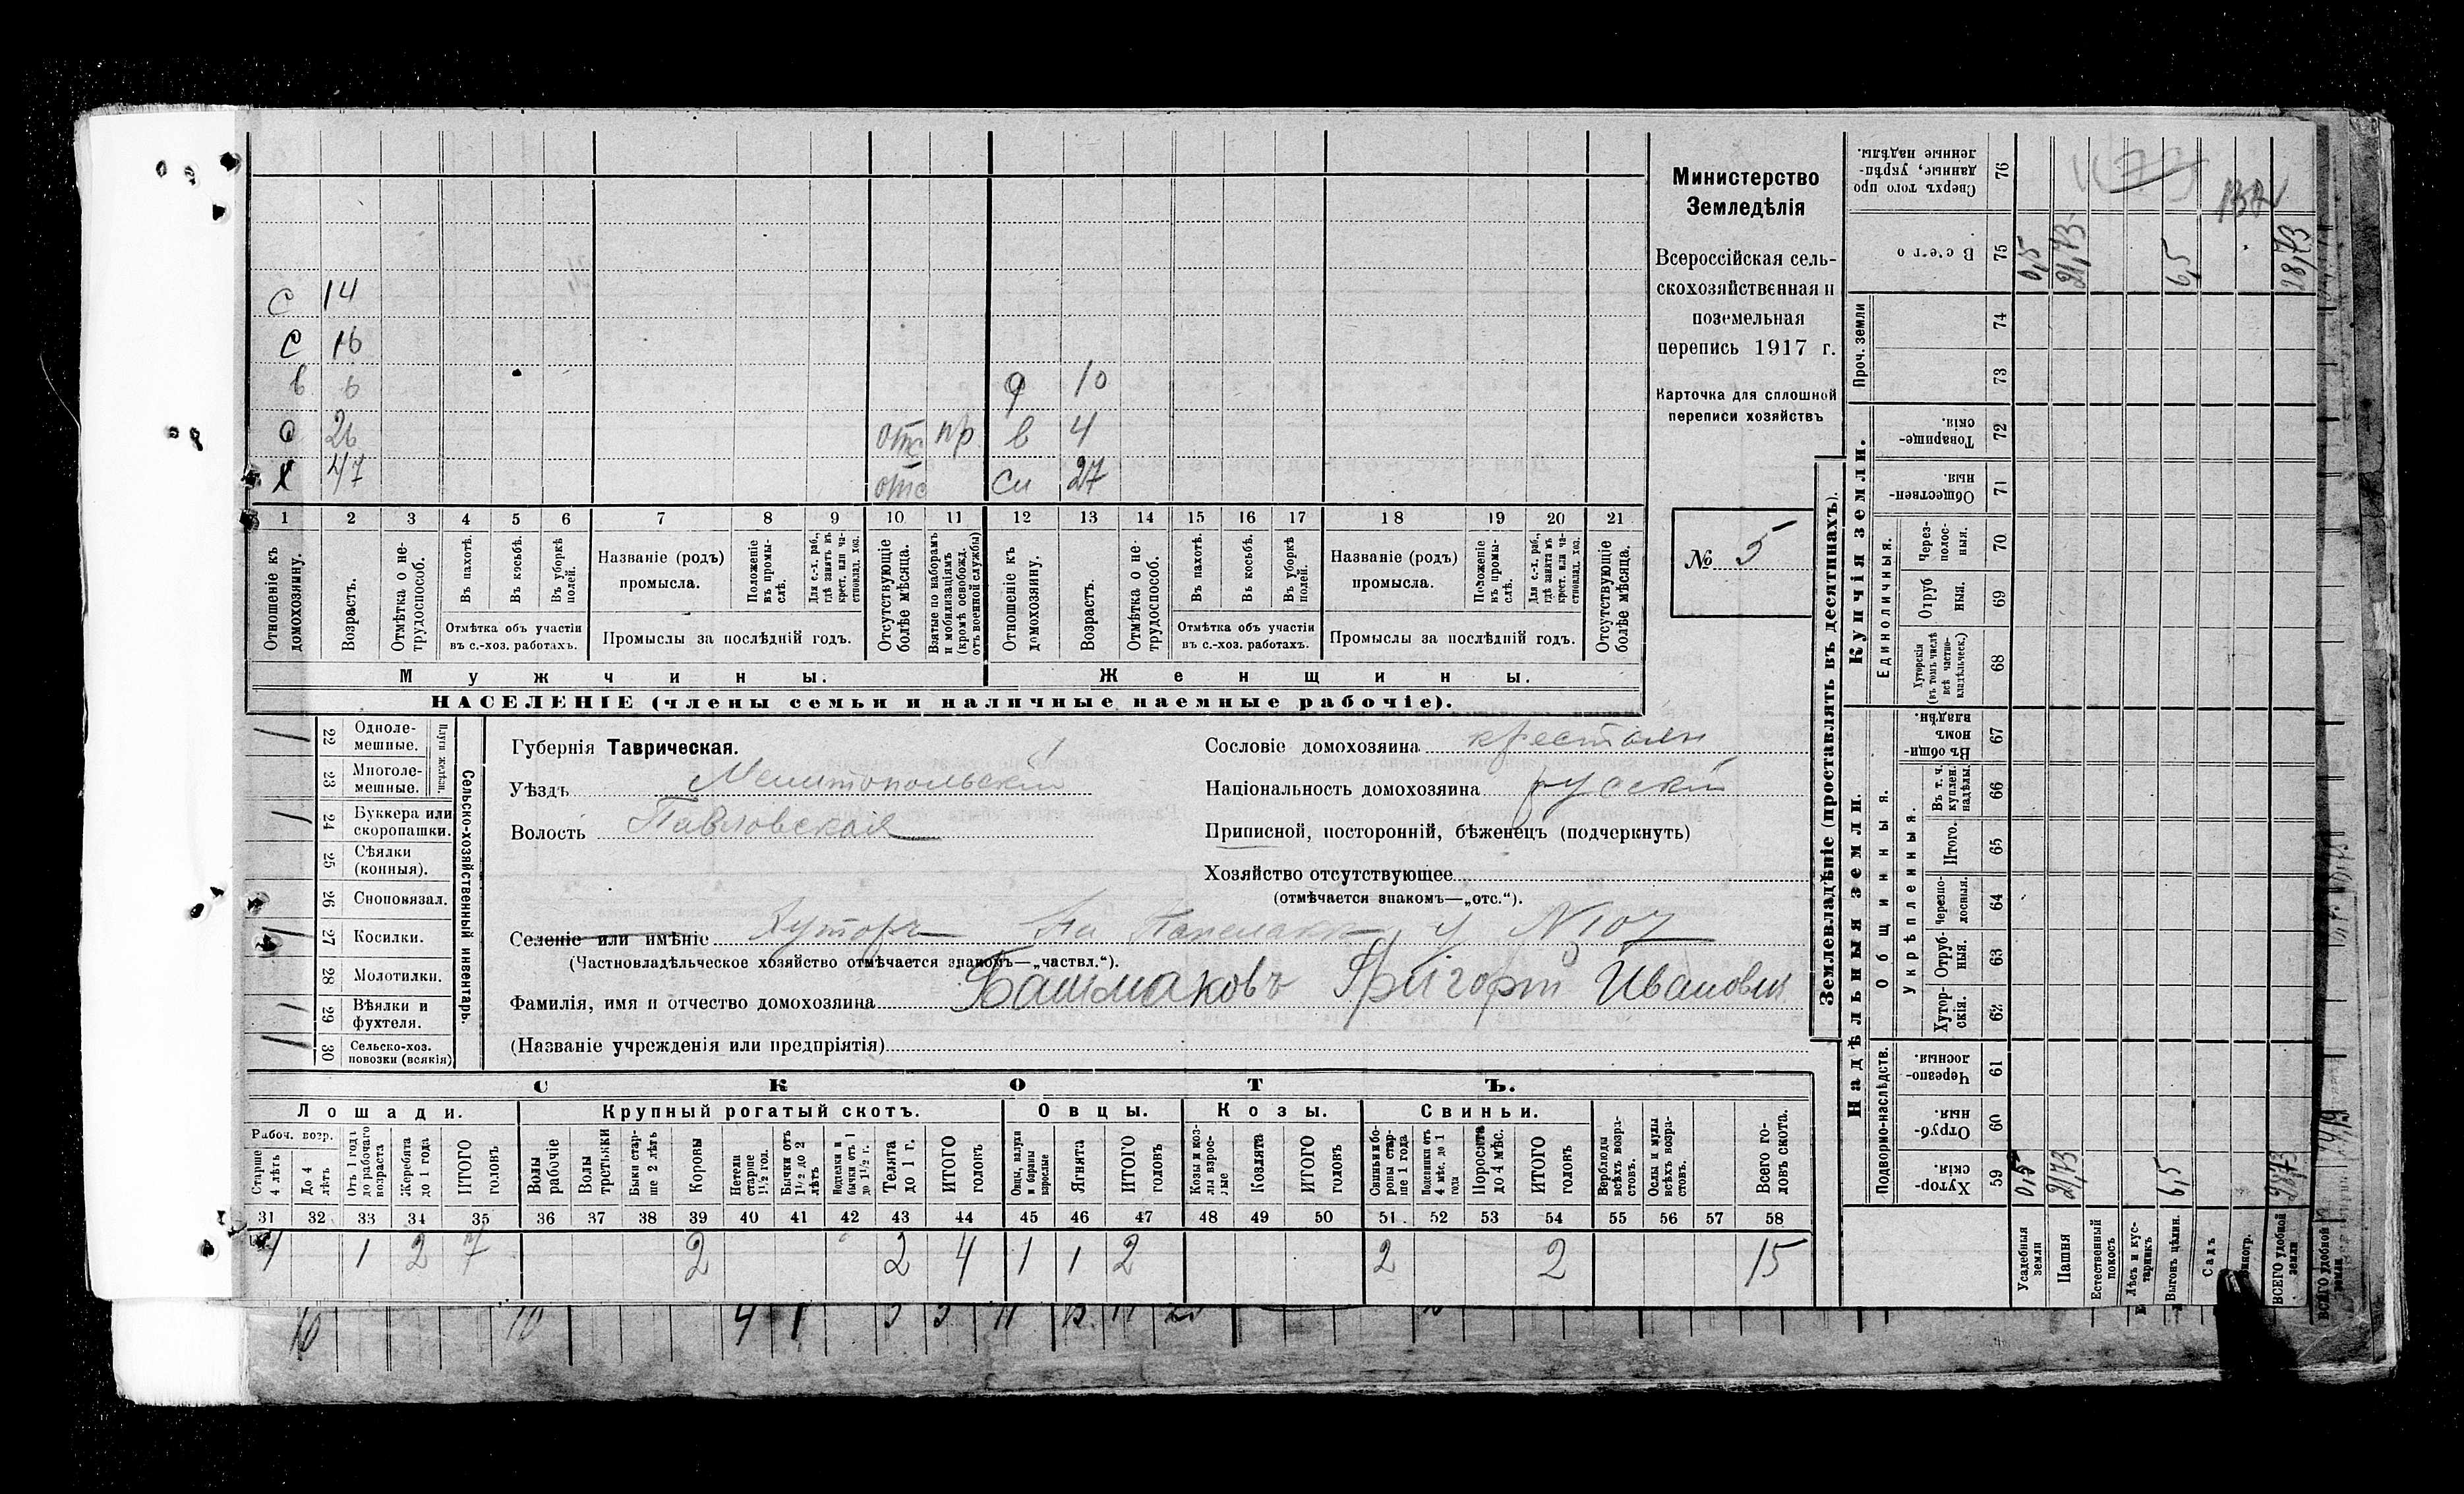 Министерство
Земледѣлія
Всероссійская сель-
скохозяйственная и
поземельная
перепись 1917 г.
Карточка для сплошной
переписи хозяйствъ
№ 5
С 14
С 16
в 6 q 10
26 отс пр. в 4
Х 47 отс сн 27
1 2 3 4 5 6 7 8 9 10 11 12 13 14 15 16 17 18 19 20 21
Отношеніе къ домохозяину.
Возрастъ.
Отмѣтка о не-трудоспособ.
Въ пахотѣ.
Въ косьбѣ.
Въ уборкѣ полей.
Отмѣтка объ участіи
въ с.-хоз. работахъ.
Названіе (родъ)
промысла.
Положеніе въ промы-слѣ.
Для с.-х. раб., гдѣ занятъ въ крест. или ча-стновлад. хоз.
Промыслы за послѣдній годъ.
Отсутствующіе болѣе мѣсяца.
Взятые по наборамъ и мобилизаціямъ (кромѣ освобожд. отъ военной службы)
Отношеніе къ домохозяину.
Возрастъ.
Отмѣтка о не-трудоспособ.
Въ пахотѣ.
Въ косьбѣ.
Въ уборкѣ полей.
Отмѣтка объ участіи
въ с.-хоз. работахъ.
Названіе (родъ)
промысла.
Положеніе въ промы-слѣ.
Для с.-х. раб., гдѣ занята въ крест. или ча-стновлад. хоз.
Промыслы за послѣдній годъ.
Отсутствующіе болѣе мѣсяца.
Мужчины. Женщины.
НАСЕЛЕНІЕ (члены семьи и наличные наемные рабочіе).
Сельско-хозяйственный инвентарь.
Плуги желѣзн.
22 Одноле-мешные.
23 Многоле-мешные.
24 Буккера или скоропашки.
25 Сѣялки (конныя).
26 Сноповязал.
27 Косилки.
28 Молотилки.
29 Вѣялки и фухтеля.
30 Сельско-хоз. повозки (всякія)
Губернія Таврическая.
Уѣздъ Мелитопольскій
Волость Павловская
Сословіе домохозяина крестьян
Національность домохозяина русскій
Приписной, посторонній, бѣженецъ (подчеркнуть)
Хозяйство отсутствующее
(отмѣчается знакомъ—„отс.“).
Селеніе или имѣніе Хуторъ На у N 107
(Частновладѣльческое хозяйство отмѣчается знакомъ—„частвл.“).
Фамилія, имя и отчество домохозяина Башмаковъ Григорій Иванович
(Названіе учрежденія или предпріятія)
СКОТЪ.
Лошади. Крупный рогатый скотъ. Овцы. Козы. Свиньи.
Рабоч. возр.
Старше 4 лѣтъ
До 4 лѣтъ
Отъ 1 года до рабочаго возраста
Жеребята до 1 года
ИТОГО головъ
Волы рабочіе
Волы третьяки
Быки стар-ше 2 лѣтъ
Коровы
Нетели старше 1½ год.
Бычки отъ 1½ до 2 лѣтъ
Подтелки и бычки отъ 1 до 1½ г.
Телята до 1 г.
ИТОГО головъ
Овцы, валухи и бараны взрослые
Ягнята
ИТОГО головъ
Козы и коз-лы взрос-лые
Козлята
ИТОГО головъ
Свиньи и бо-ровы стар-ше 1 года
Подсвинки отъ 4 мѣс. до 1 года
Поросята до 4 мѣс.
ИТОГО головъ
Верблюды всѣхъ возра-стовъ.
Ослы и мулы всѣхъ возра-стовъ.
Всего го-ловъ скота.
31 32 33 34 35 36 37 38 39 40 41 42 43 44 45 46 47 48 49 50 51 52 53 54 55 56 57 58
4 1 2 7 2 2 4 1 1 2 2 2 15
Землевладѣніе (проставлять въ десятинахъ).
Купчія земли.
Надѣльныя земли.
Сверхъ того про данные, укрѣп-ленные надѣлы. 76
Всего 75
Проч. земли 74 73
Товарище-скія. 72
Обществен-ныя. 71
Единоличныя.
Через-полос-ныя. 70
Отруб ныя. 69
Хуторскія (въ томъ числѣ всѣ частно-владѣльческ.) 68
Въ общин-номъ владѣн. 67
Общинныя.
Укрѣпленныя.
Въ т. ч. куплен. надѣлы. 66
Итого. 65
Черезпо-лосныя. 64
Отруб-ныя. 63
Хутор-скія. 62
Подворно-наслѣдств.
Черезпо-лосныя 61
Отруб-ныя 60
Хутор-скія. 59
Усадебныя земли 0,5 0,5
Пашня 21,73 21,73
Естественный покосъ
Лѣсъ и кус-тарникъ
Выгонъ цѣлин. 6,5 6,5
Садъ
ВСЕГО удобной земли 28,73 28,73